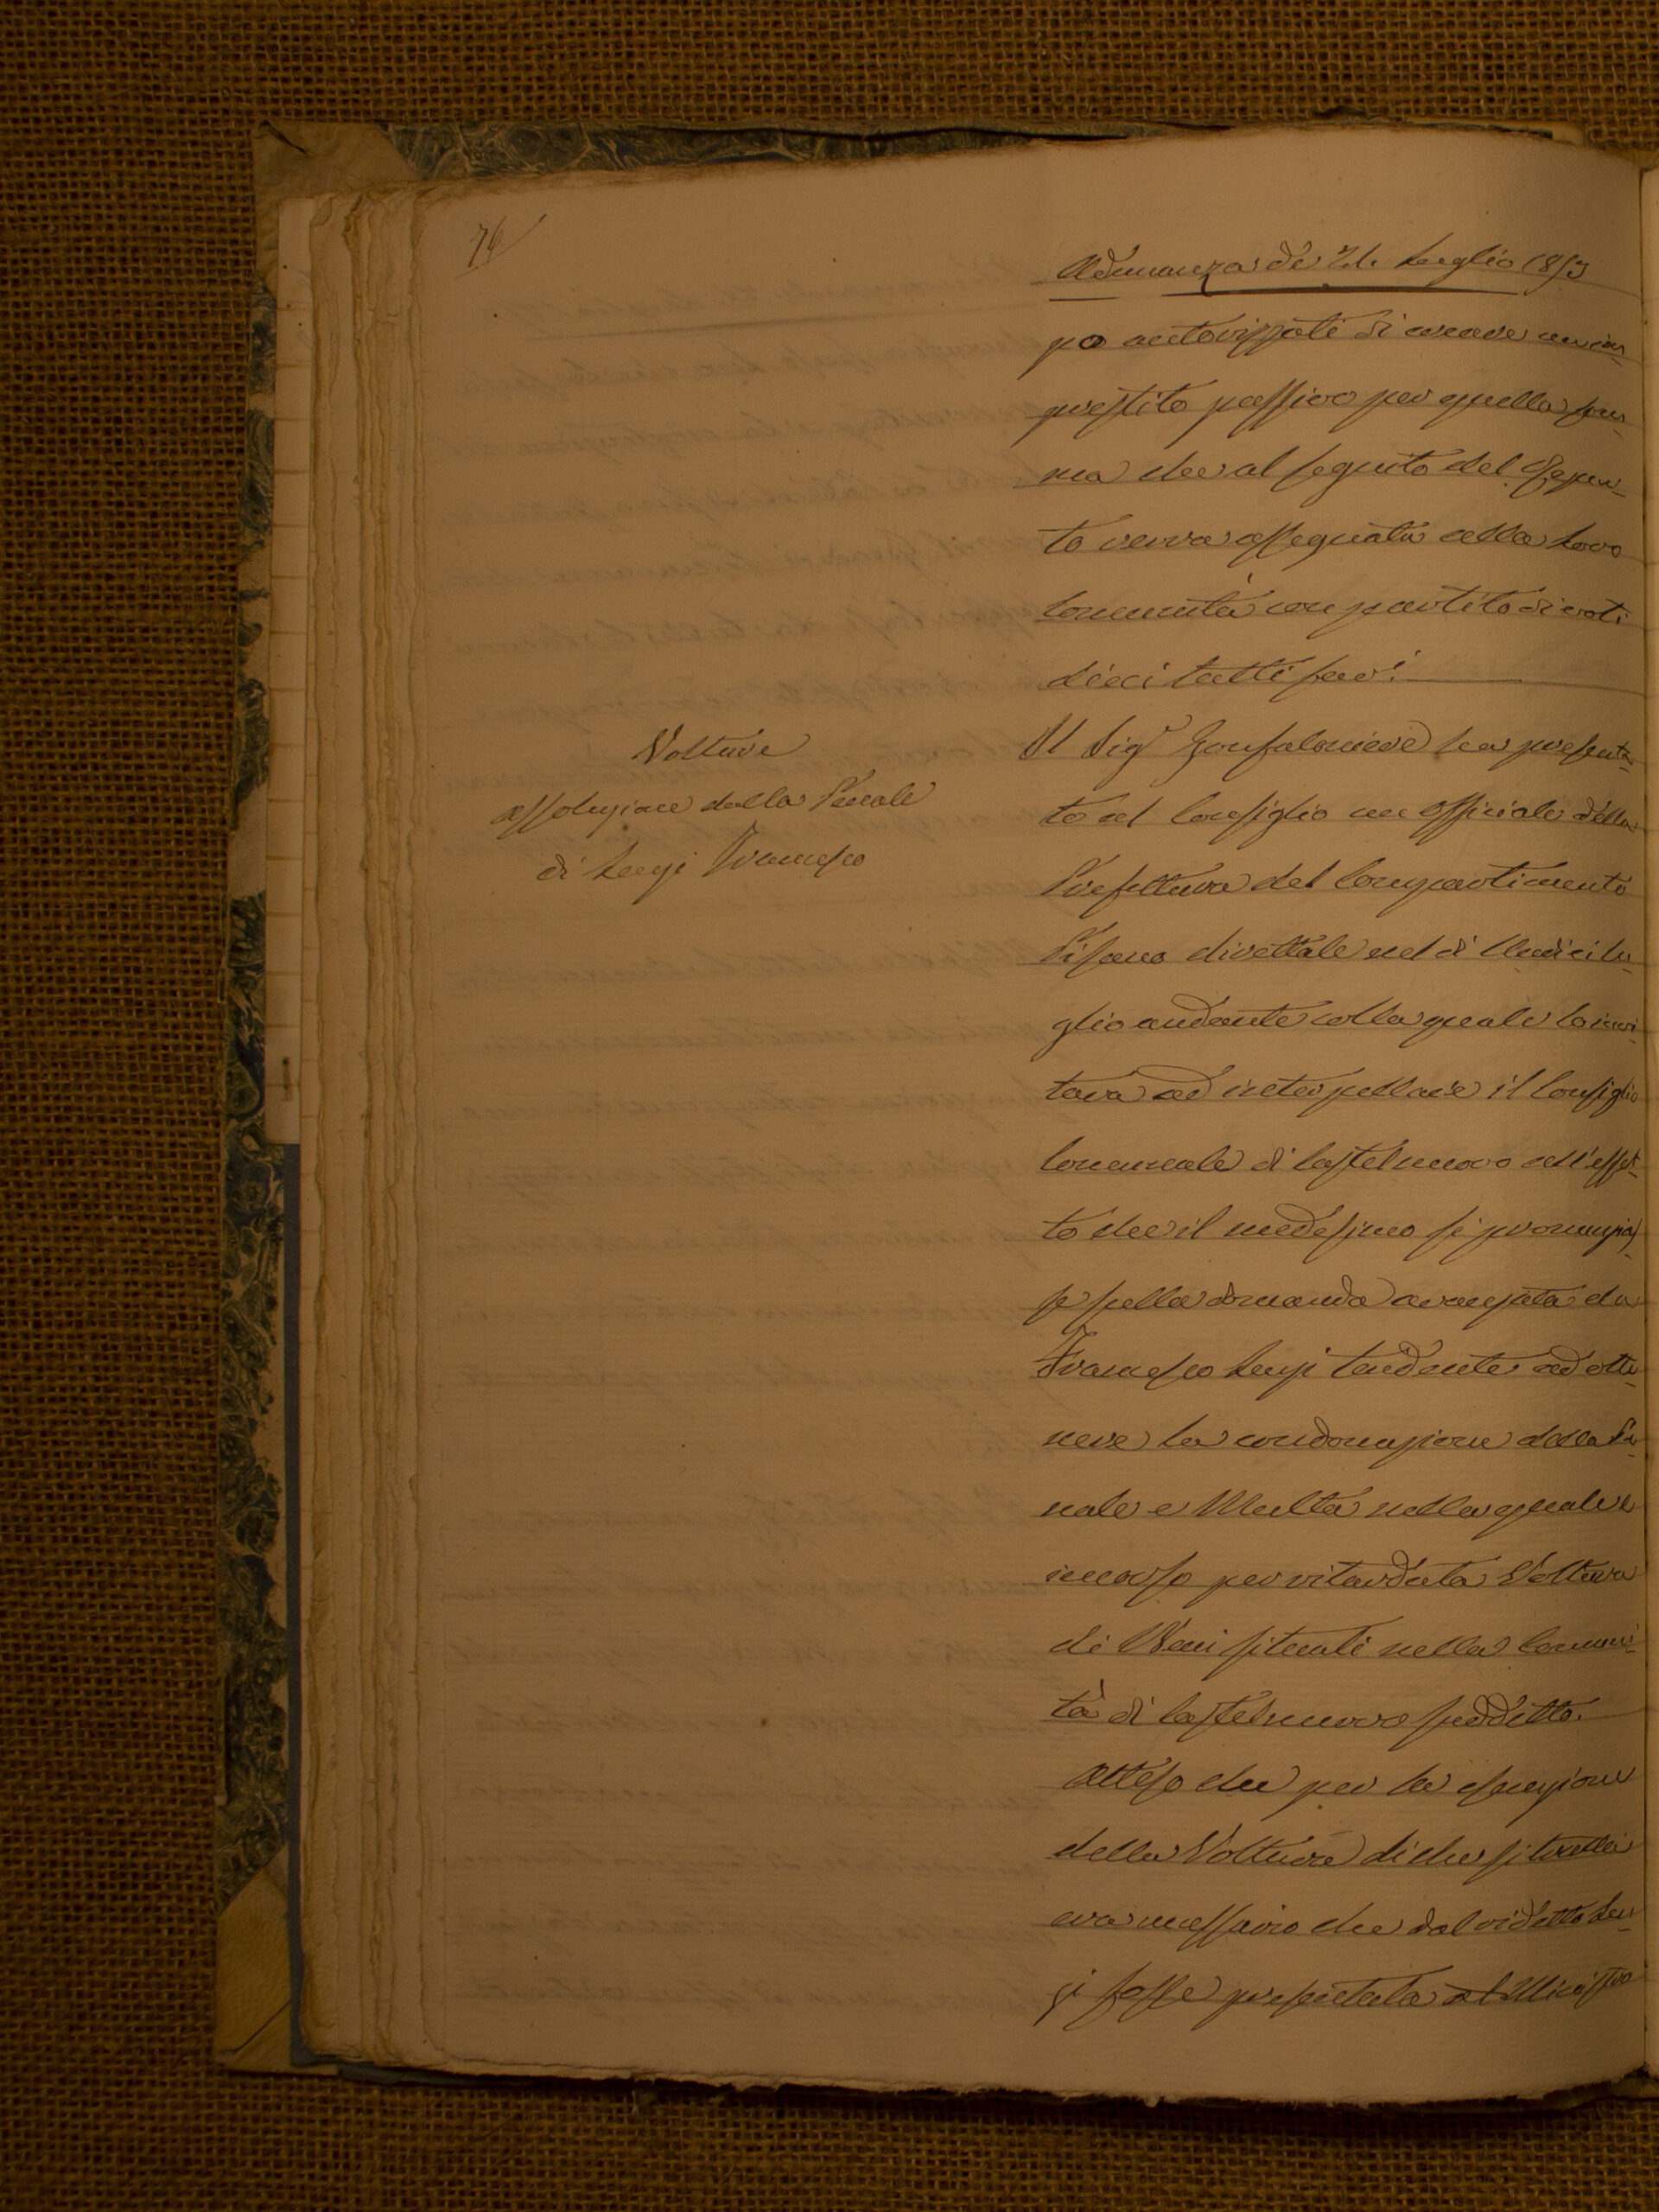 76
Adunanza de 21. Luglio 1853
po autorizzati di creare un im
prestito passivo per quella som
ma che al seguito del Repar
to verrà assegnata alla loro
Comunità con partito di voti
dieci tutti favi
Volture
assoluzione dalla Penale
di Lenzi Francesco
Il Sigr Gonfaloniere ha presenta
to al Consiglio una Officiale della
Prefettura del Compartimento
Pisano direttale nel dì Undici Lu
glio andante colla quale lo invi
tava ad interpellare il Consiglio
Comunale di Castelnuovo all'effet
to che il medesimo si pronunzias
se sulla domanda avanzata da
Francesco Lenzi tendente ad otte
nere la condonazione della Pe
nale e Multa nella quale è
incorso per ritardata Voltura
di Beni situati nella Comuni
tà di Castelnuovo suddetto.
Atteso che per la esenzione
della Voltura di che si tratta
era necessario che dal ridetto Len
zi fosse presentata al Ministro